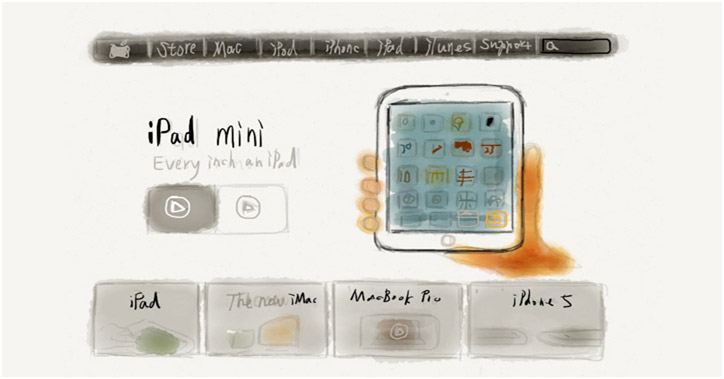 Store Mac iPod iPhone iPad iTunes Support
iPad mini
Every inch an iPad
iPad
The new iMac
MacBook Pro
iPhone 5